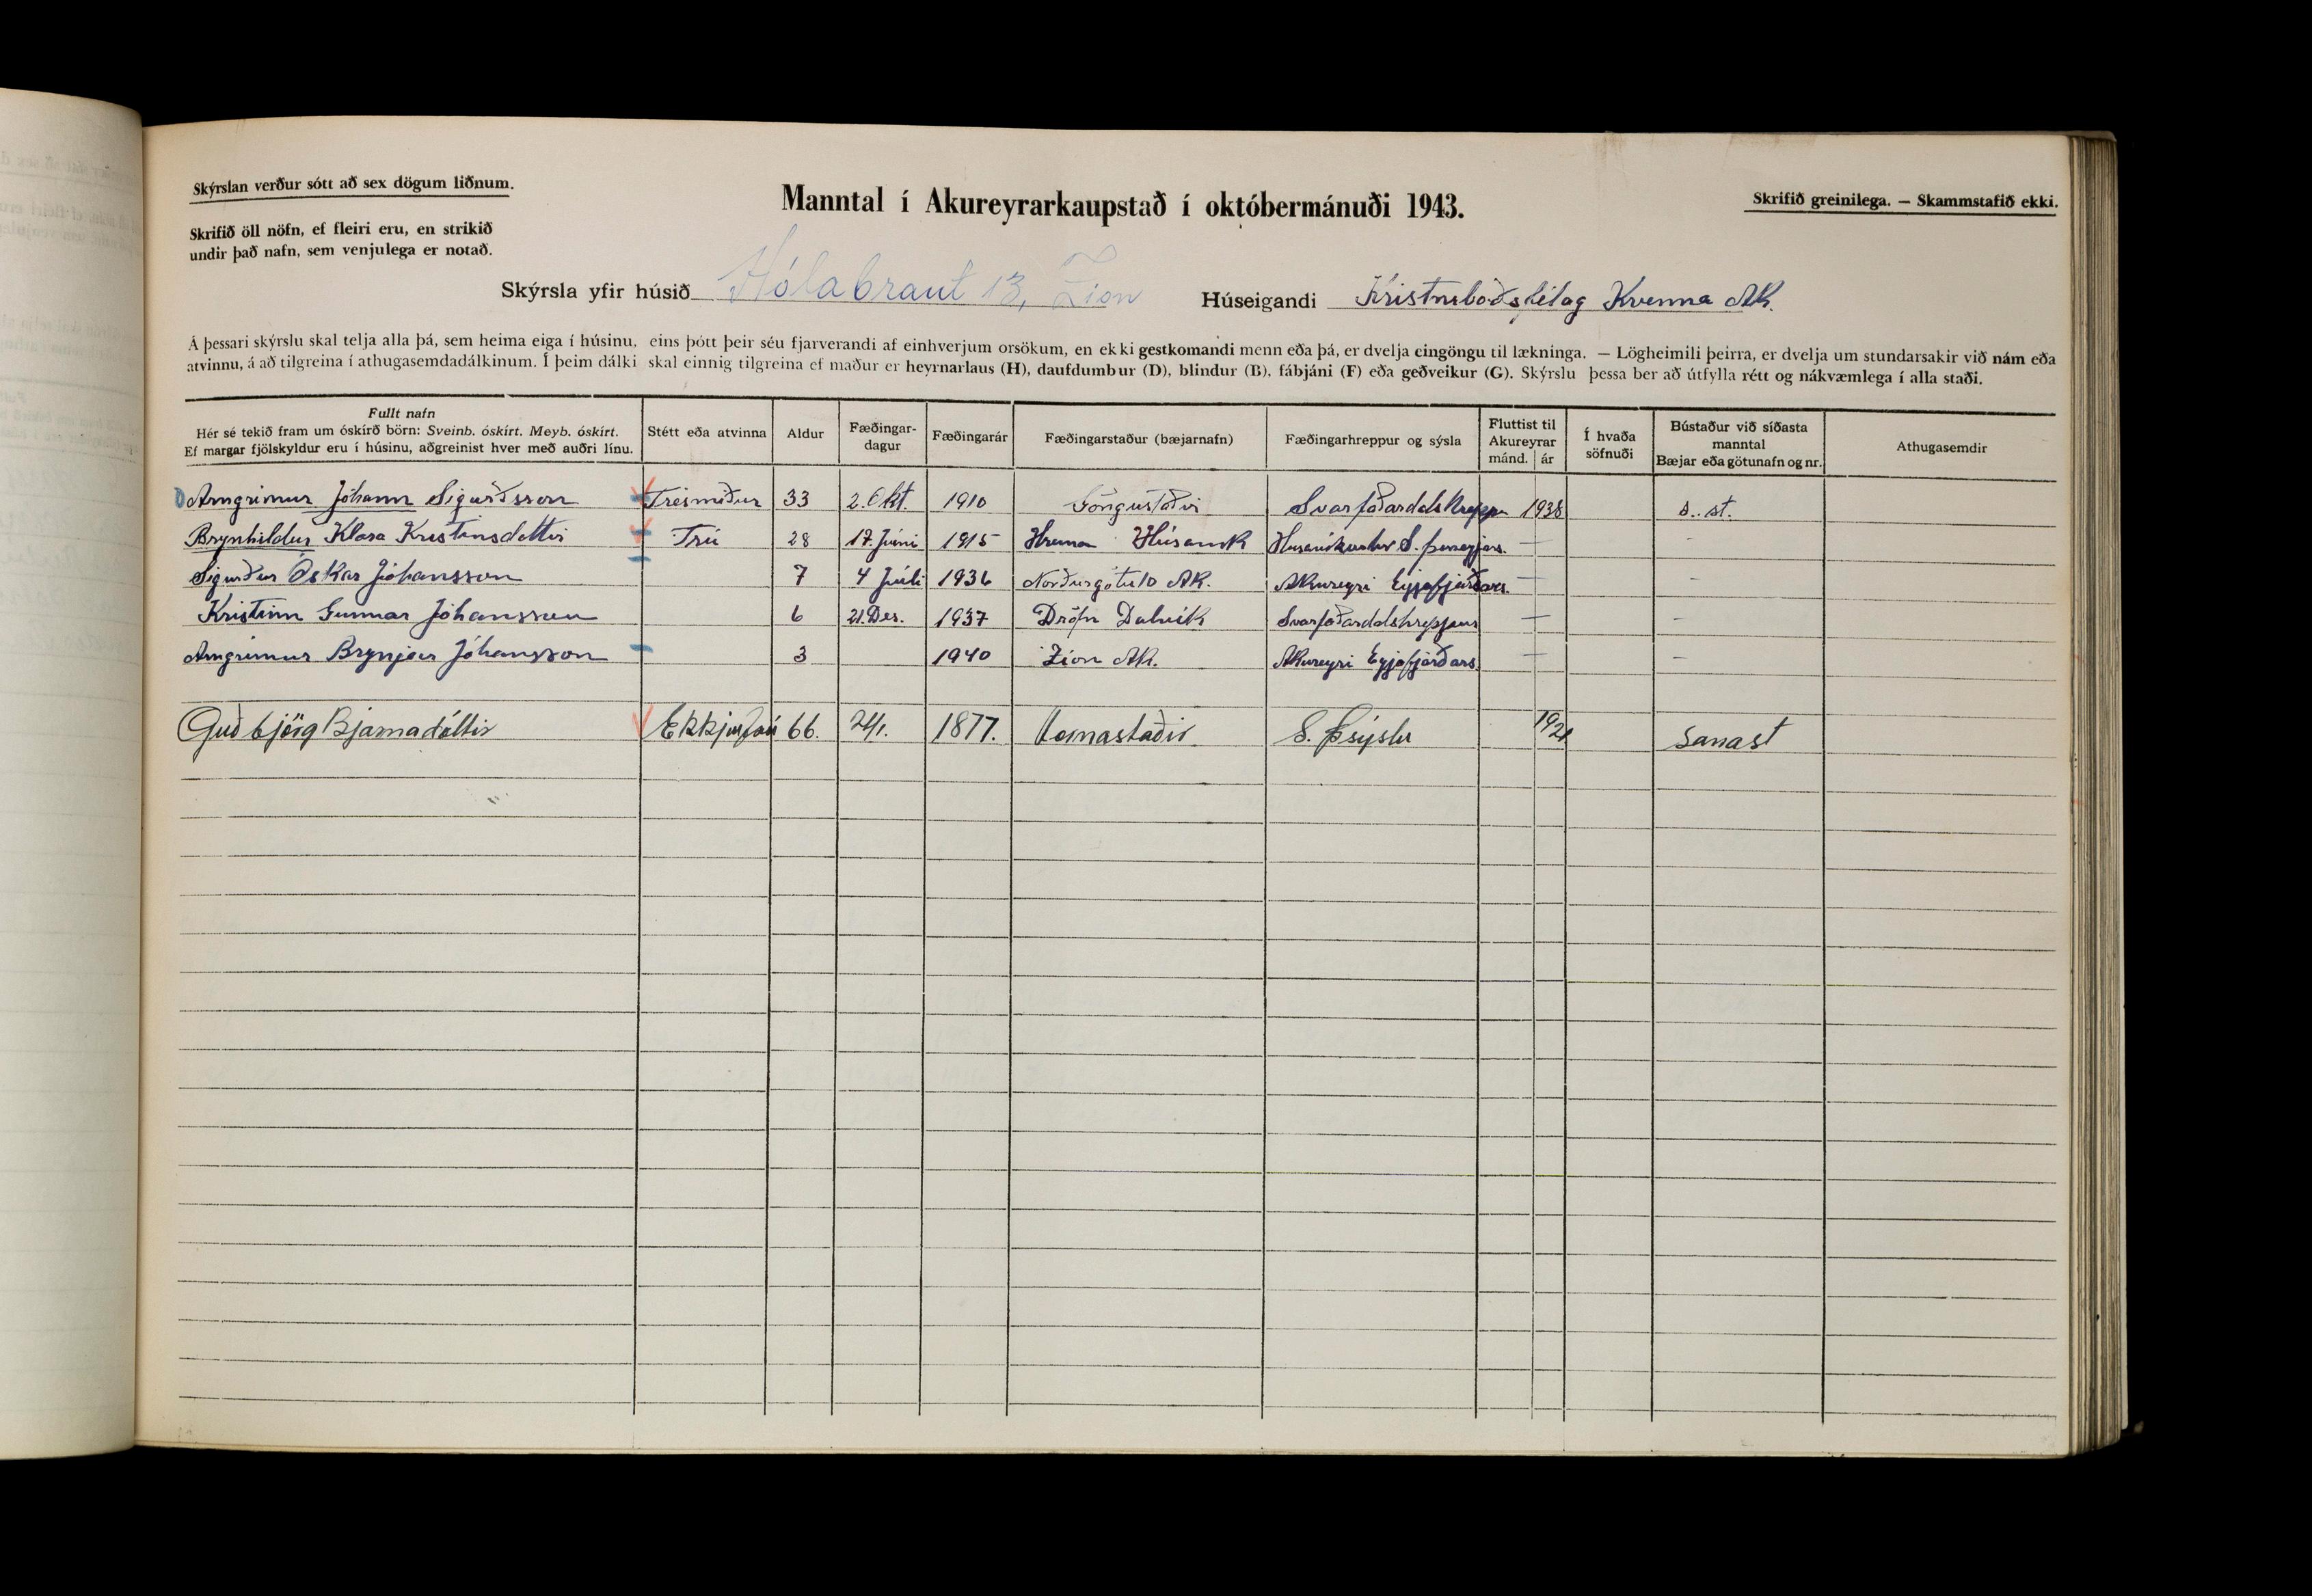 Skýrslan verður sótt að sex dögum liðnum.
Manntal í Akureyrarkaupstað í októbermánuði 1943.
Skrifið greinilega. — Skammstafið ekki.
Skrifið öll nöfn, ef fleiri eru, en strikið
undir það nafn, sem venjulega er notað.
Skýrsla yfir húsið Hólabraut 13, Zion Húseigandi Kristniboðsfélag Kvenna Ak.
Á þessari skýrslu skal telja alla þá, sem heima eiga í húsinu, eins þótt þeir séu fjarverandi af einhverjum orsökum, en ekki gestkomandi menn eða þá, er dvelja eingöngu til lækninga. — Lögheimili þeirra, er dvelja um stundarsakir við nám eða
atvinnu, á að tilgreina í athugasemdadálkinum. Í þeim dálki skal einnig tilgreina ef maður er heyrnarlaus (H), daufdumbur (D), blindur (B), fábjáni (F) eða geðveikur (G). Skýrslu þessa ber að útfylla rétt og nákvæmlega í alla staði.
Fullt nafn
Hér sé tekið fram um óskírð börn: Sveinb. óskírt. Meyb. óskírt.
Ef margar fjölskyldur eru í húsinu, aðgreinist hver með auðri línu.
Stétt eða atvinna
Aldur
Fæðingar-
dagur
Fæðingarár
Fæðingarstaður (bæjarnafn)
Fæðingarhreppur og sýsla
Fluttist til
Akureyrar
mánd. ár
Í hvaða
söfnuði
Bústaður við síðasta
manntal
Bæjar eða götunafn og nr.
Athugasemdir
Arngrímur Jóhann Sigurðsson Trésmiður 33 2. Okt. 1910 Göngustaðir Svarfaðardalshreppi 1938 s. st.
Brynhildur Klara Kristinsdóttir Frú 28 17. Júni 1915 Hruna Húsavík S. Þingeyjars. — -
Sigurður Óskar Jóhansson 7 4 Júli 1936 Norðurgötu 10 AK. Akureyri Eyjafjarðars. — -
Kristinn Gunnar Jóhansson 6 21. Des. 1937 Dröfn Dalvík Svarfaðardalshreppur — -
Arngrímur Brynjar Jóhansson 3 1940 Zion AK. Akureyri Eyjafjarðars. — -
Guðbjörg Bjarnadóttir Ekkjufrú 66. 24/1. 1877. S. Þsýslu sanast